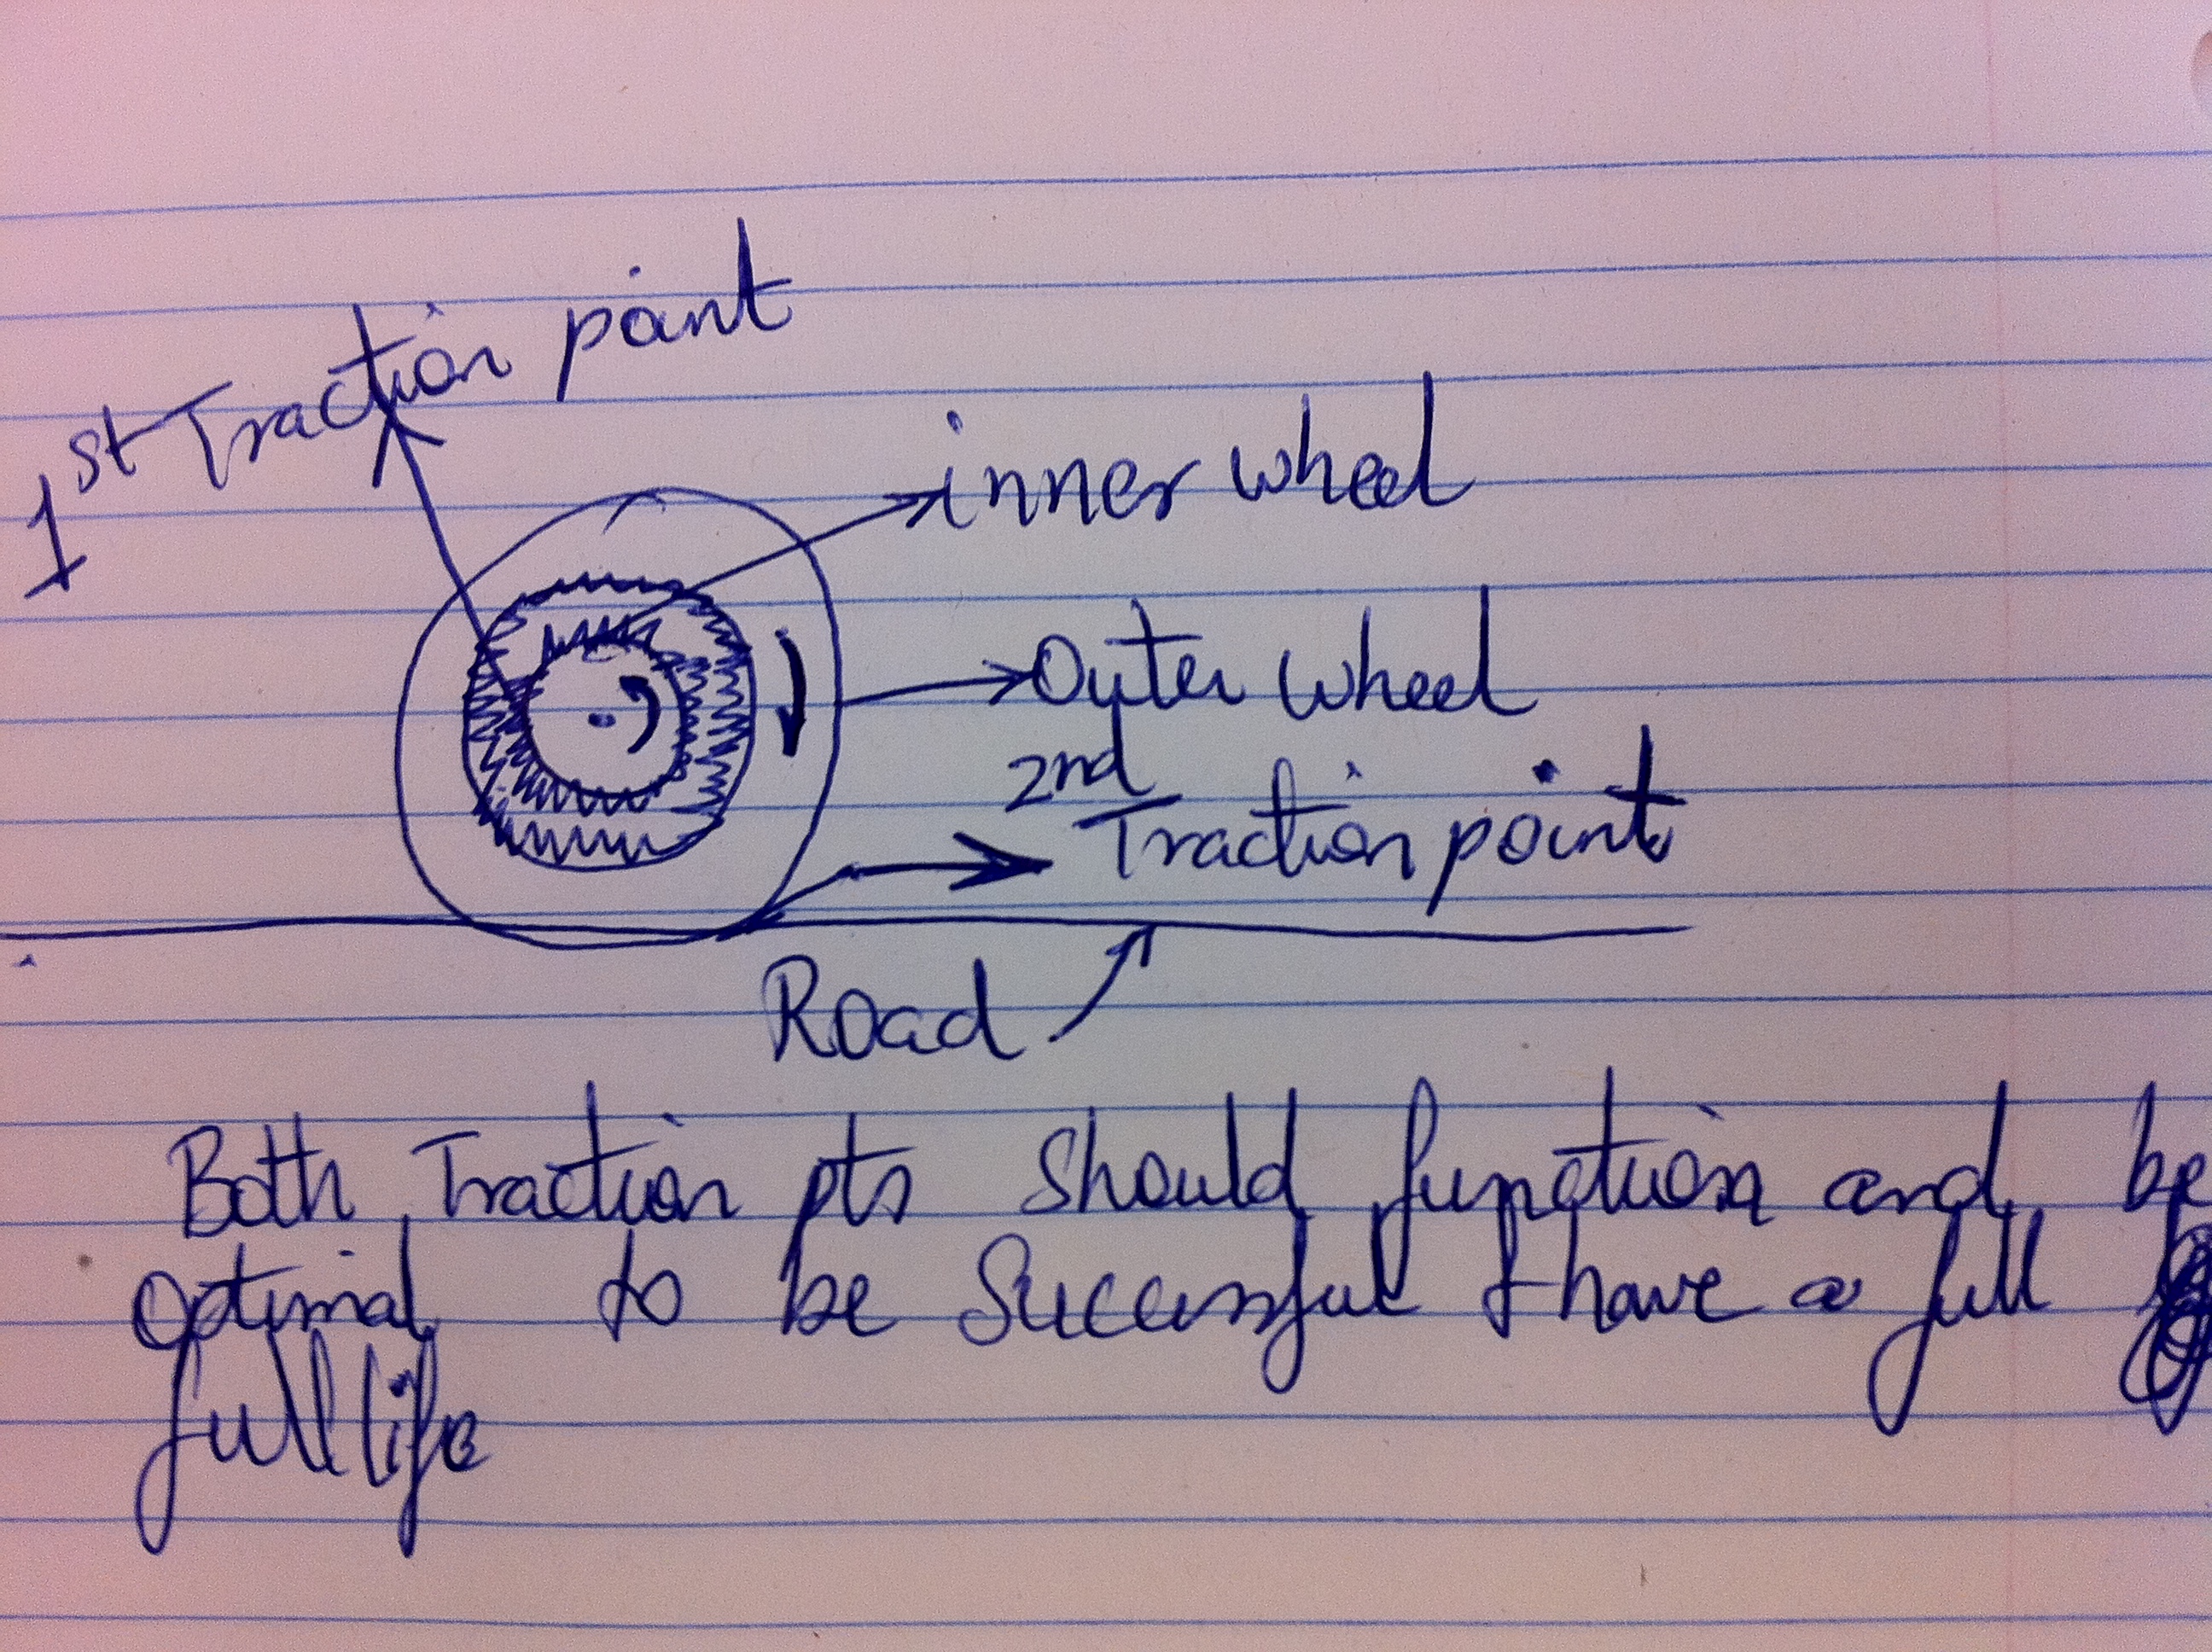 1st Traction point
inner wheel
Outer wheel
2nd
Traction point
Road
Both Traction pts should function and be
optimal to be Successful & have a full
full life